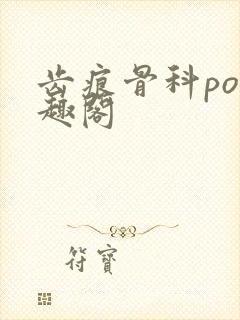 齿痕骨科po
趣阁
符宝